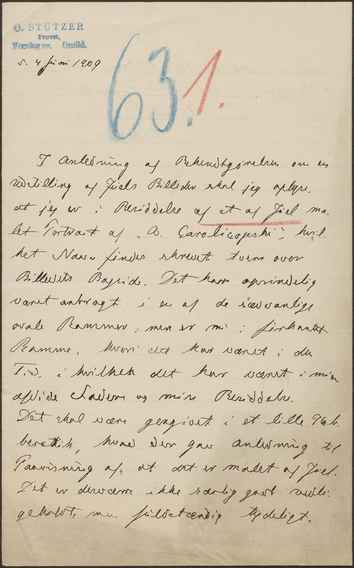 O. STÜTZER
d. 4 Juni 1909
63. 1.
I Anledning af Bekendtgørelsen om en
Udstilling af Juels Billeder skal jeg oplyse,
at jeg er i Besiddelse af et af Juel ma-
let Portræt af
het Navn findes skrevet tværs over
Billedets Bagside. Det har oprindelig
været anbragt i en af de sædvanlige
ovale Rammer, men er nu i firkantet
Ramme, hvori det har været i den
Tid, i hvilken det har været i min
afdøde og min Besiddelse.
Det skal være gengivet i et lille
hvad der gav Anledning til
Paavisning af, at det er malet af Juel.
Det er desværre ikke særlig godt vedli-
geholdt, men fuldstændig tydeligt.